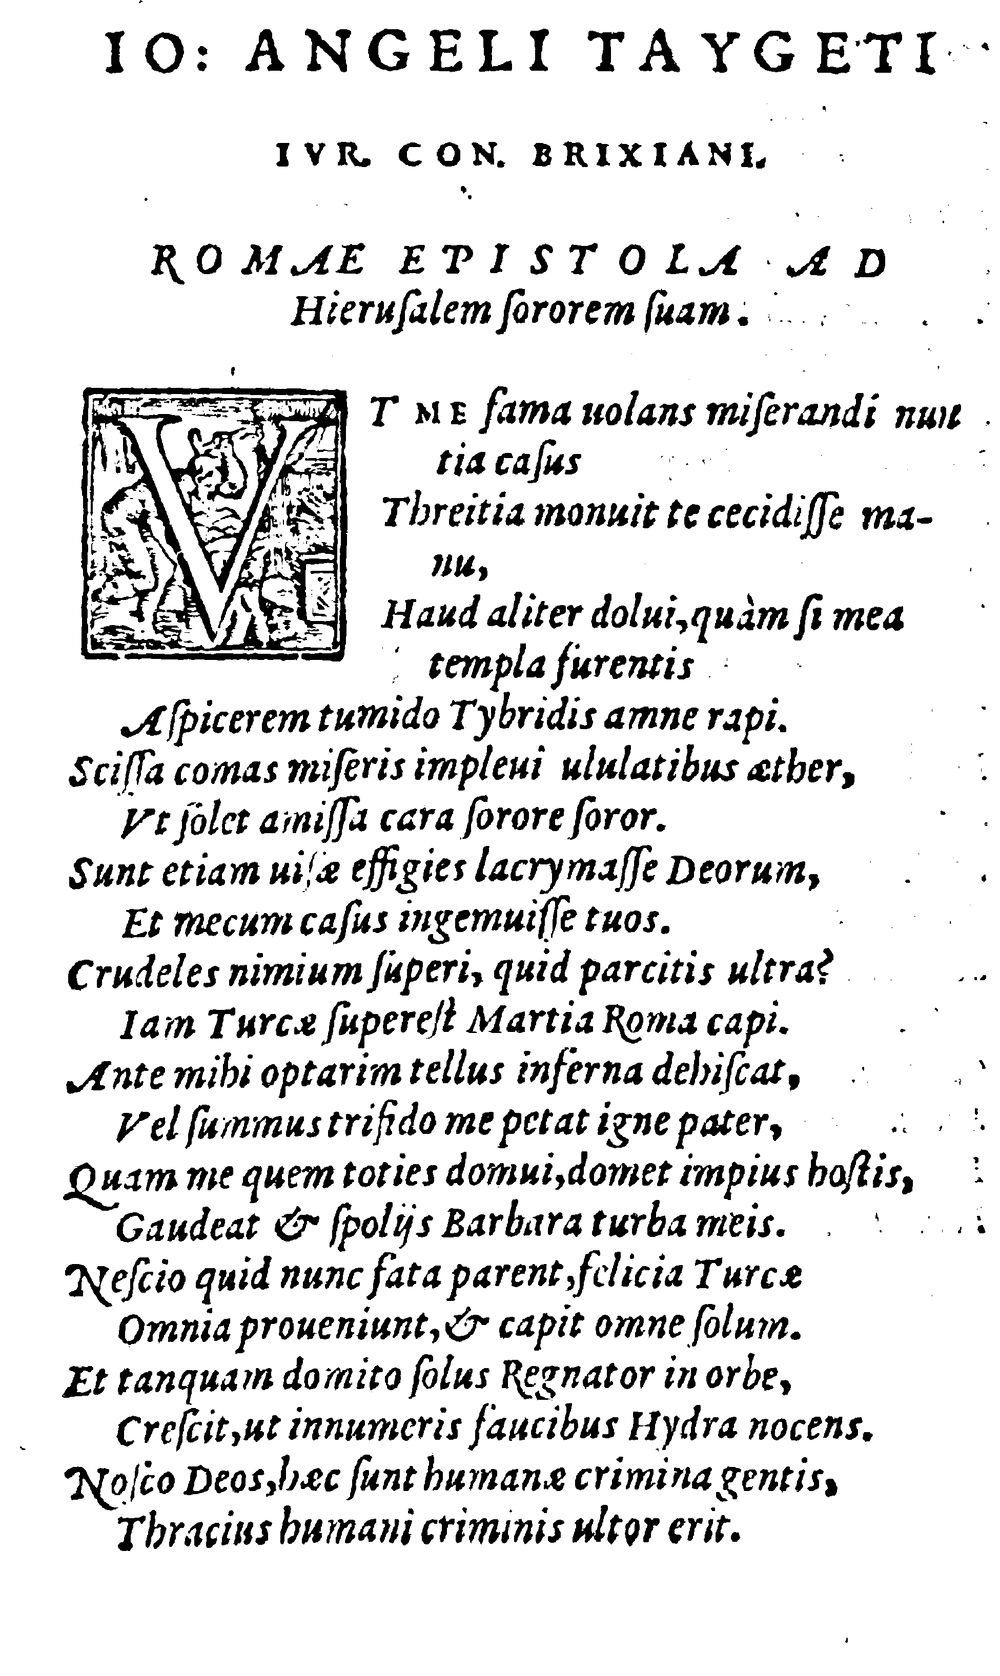 IO: ANGELI TAYGETI
IVR. CON. BRIXIANI.
ROMAE EPISTOLA AD
Hieruſalem ſororem ſuam.
VT ME fama uolans miſerandi nun
tia caſus
Threitia monuit te cecidiſſe ma-
nu,
Haud aliter dolui, quàm ſi mea
templa furentis
Aſpicerem tumido Tybridis amne rapi.
Sciſſa comas miſeris impleui ululatibus æther,
Vt ſolet amiſſa cara ſorore ſoror.
Sunt etiam uiſæ effigies lacrymaſſe Deorum,
Et mecum caſus ingemuiſſe tuos.
Crudeles nimium ſuperi, quid parcitis ultra?
Iam Turcæ ſupereſt Martia Roma capi.
Ante mihi optarim tellus inferna dehiſcat,
Vel ſummus trifido me petat igne pater,
Quam me quem toties domui, domet impius hoſtis,
Gaudeat & ſpolijs Barbara turba meis.
Neſcio quid nunc fata parent, felicia Turcæ
Omnia proueniunt, & capit omne ſolum.
Et tanquam domito ſolus Regnator in orbe,
Creſcit, ut innumeris faucibus Hydra nocens.
Noſco Deos, hæc ſunt humanæ crimina gentis,
Thracius humani criminis ultor erit.